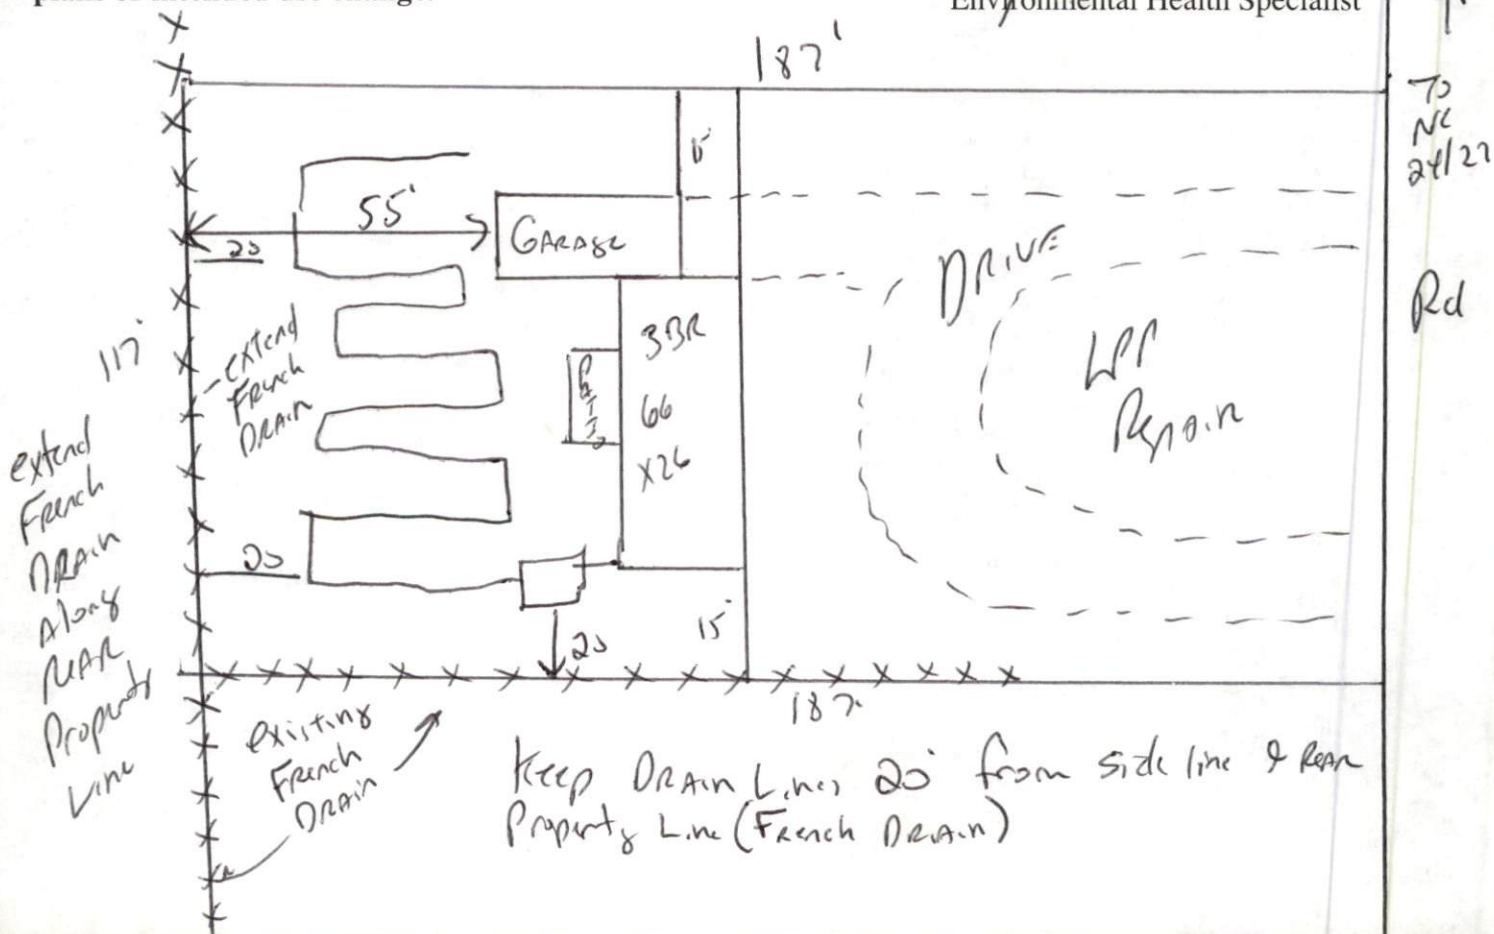 Environmental Health Specialist
187'
To
NC
24/27
Rd
55'
GARAGE
20
DRIVE
LPP
Repair
3BR
66
X26
PATIO
117'
extend
French
DRAIN
extend
French
DRAIN
Along
REAR
Property
Line
20
20
15'
187'
existing
French
DRAIN
Keep DRAIN Lines 20' from side line & REAR
Property Line (French DRAIN)